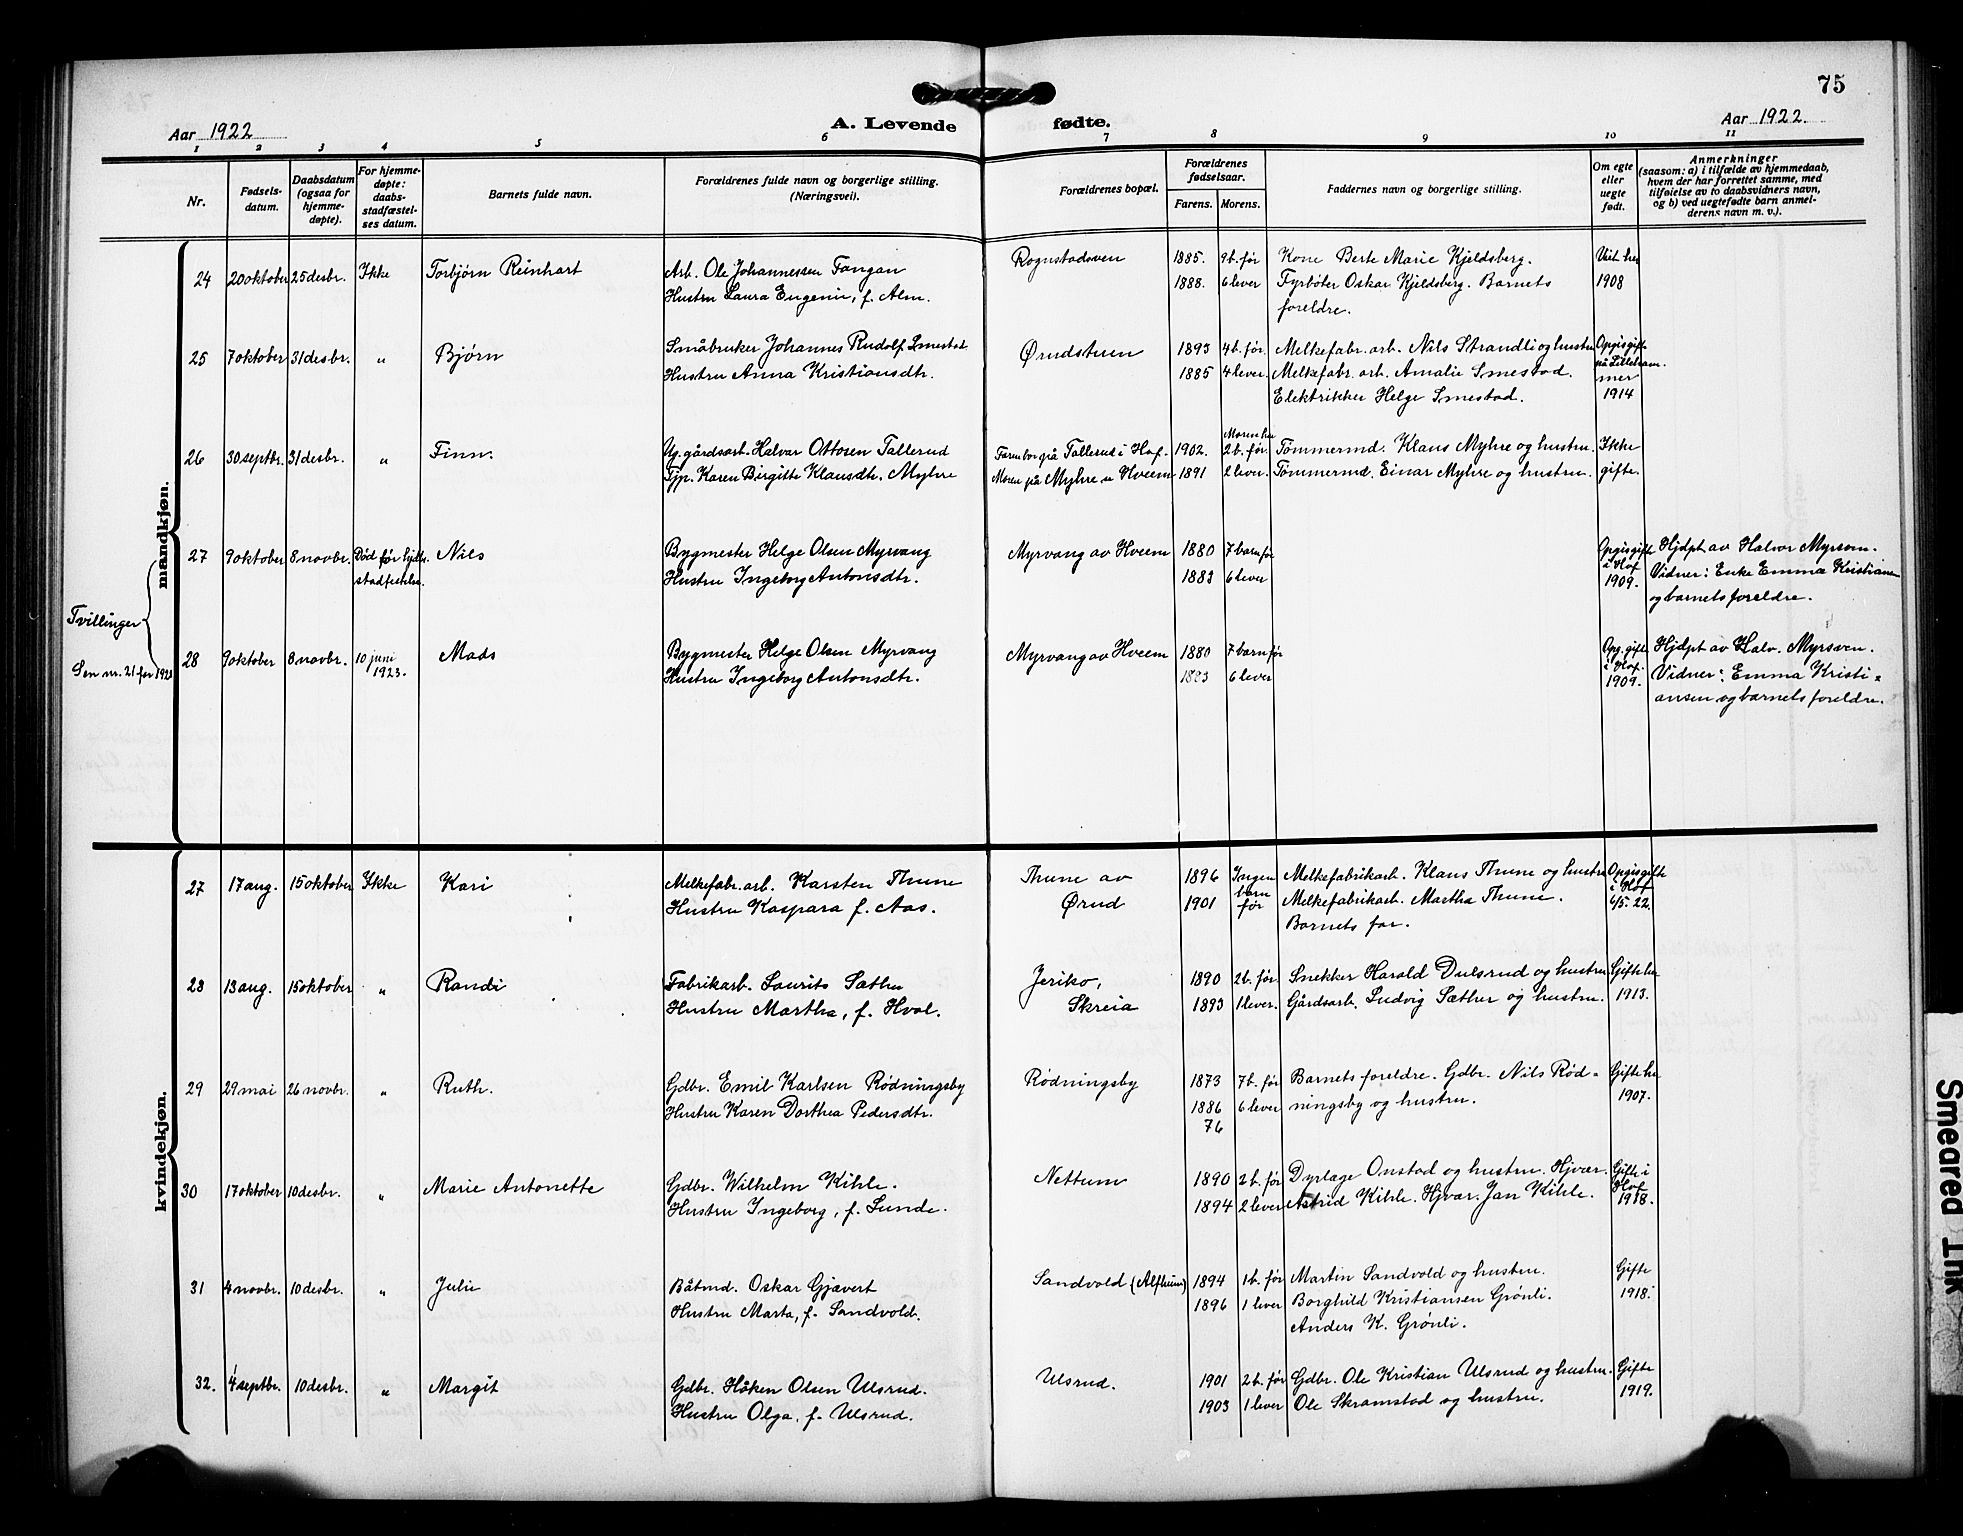 75
Aar 1922
A. Levende fødte.
Aar 1922.
1 2 3 4 5 6 7 8 9 10 11
Nr.
Fødsels-
datum.
Daabsdatum
(ogsaa for
hjemme-
døpte).
For hjemme-
døpte:
daabs-
stadfæstel-
ses datum.
Barnets fulde navn.
Forældrenes fulde navn og borgerlige stilling.
(Næringsvei).
Forældrenes bopæl.
Forældrenes
fødselsaar.
Farens. Morens.
Faddernes navn og borgerlige stilling.
Om egte
eller
uegte
født.
Anmerkninger
(saasom: a) i tilfælde av hjemmedaab,
hvem der har forrettet samme, med
tilføielse av to daabsvidners navn,
og b) ved uegtefødte barn anmel-
derens navn m. v.).
mandkjøn.
24 20 oktober 25 desbr. Ikke Torbjørn Reinhart
Arb. Ole Johannessen Fangan
Hustru Laura Eugenie, f. Alm.
Rognstadsveen
1885. 9 b. før
1888. 6 lever
Kone Berte Marie Kjeldsberg.
Fyrbøter Oskar Kjeldsberg. Barnets
foreldre.
Viet her
1908
25 7 oktober 31 desbr. " Bjørn
Småbruker Johannes Rudolf Smestad
Hustru Anna Kristiansdtr.
Ørudstuen
1893 4 b. før.
1885 4 lever.
Melkefabr. arb. Nils Strandli og hustru
Melkefabr. arb. Amalie Smestad.
Elektrikker Helge Smestad.
Opgis gifte
på Lilleham-
mer
1914
26 30 septbr. 31 desbr. " Finn.
Ug. gårdsarb. Halvar Ottosen Tallerud
Tjp. Karen Birgitte Klausdtr. Myhre
Faren bor på Tallerud i Hof.
Moren på Myhre u Hveem
Moren her
1902. 2 b. før.
1891 2 lever.
Tømmermd. Klaus Myhre og hustru.
Tømmermd. Einar Myhre og hustru.
Ikke
gifte.
27 9 oktober 8 novbr. Død før
Nils
Bygmester Helge Olsen Myrvang
Hustru Ingeborg Antonsdtr.
Myrvang av Hveem
1880 7 barn før
1883 6 lever
Opgis gifte
i Hof
1909.
Hjdpt av Halvor
Vidner: Enke Emma Kristiansen
og barnets foreldre.
Tvillinger
Sen nr. 21 for 1923
28 9 oktober 8 novbr. 10 juni
1923.
Mads
Bygmester Helge Olsen Myrvang
Hustru Ingeborg Antonsdtr.
Myrvang av Hveem
1880 7 barn før
1883 6 lever
Opg. gift
i Hof.
1909.
Hjdpt av Halv. Myrsveen.
Vidner: Emma Kristi=
ansen og barnets foreldre.
kvindekjøn.
27 17 aug. 15 oktober Ikke Kari
Melkefabr. arb. Karsten Thune
Hustru Kaspara f. Aas.
Thune av
Ørud
1896 Ingen
barn
1901 før
Melkefabrikarb. Klaus Thune og hustru
Melkefabrikarb. Martha Thune.
Barnets far.
Opgis gifte
i Hof
6/5. 22.
28 13 aug. 15 oktober " Randi
Fabrikarb. Laurits Sæther
Hustru Martha, f. Hval.
Jeriko,
Skreia
1890 2 b. før.
1893 1 lever.
Snekker Harald Dulsrud og hustru
Gårdsarb. Ludvig Sæther og hustru.
Gifte her
1913.
29 29 mai 26 novbr. " Ruth.
Gdbr. Emil Karlsen Rødningsby
Hustru Karen Dorthea Pedersdtr.
Rødningsby
1873 7 b. før
1886 6 lever
76
Barnets foreldre. Gdbr. Nils Rød=
ningsby og hustru.
Gifte her
1907.
30 17 oktober 10 desbr. " Marie Antonette
Gdbr. Wilhelm Kihle.
Hustru Ingeborg, f. Lunde.
Nettum
1890 2 b. før
1894 2 lever
Dyrlæge Onstad og hustru. Hjvær.
Astrid Kihle. Hjvar. Jan Kihle.
Gifte i
Hof
1918.
31 4 novbr. 10 desbr. " Julie
Båtmd. Oskar Gjævert
Hustru Marta, f. Sandvold.
Sandvold (Alfheim)
1894 1 b. før
1896 1 lever
Martin Sandvold og hustru.
Borghild Kristiansen Grønli.
Anders K. Grønli.
Gifte
1918.
32. 14 septbr. 10 desbr. " Margit
Gdbr. Håken Olsen Ulsrud.
Hustru Olga, f. Ulsrud.
Ulsrud.
1901 2 b. før
1903 1 lever
Gdbr. Ole Kristian Ulsrud og hustru.
Ole Skramstad og hustru.
Gifte
1919.
Smeared Ink